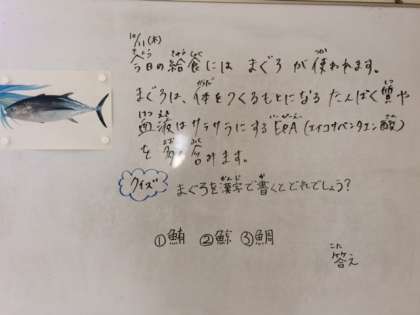 10/11(木)
今日の給食には まぐろ が 使われます。
まぐろは、体をつくるもとになる たんぱく質や
血液はサラサラにする EPA (エイコサペンタエン酸)
を 多く含みます。
クイズ まぐろを漢字で書くとどれでしょう?
①鮪 ②鯨 ③鯛
答え